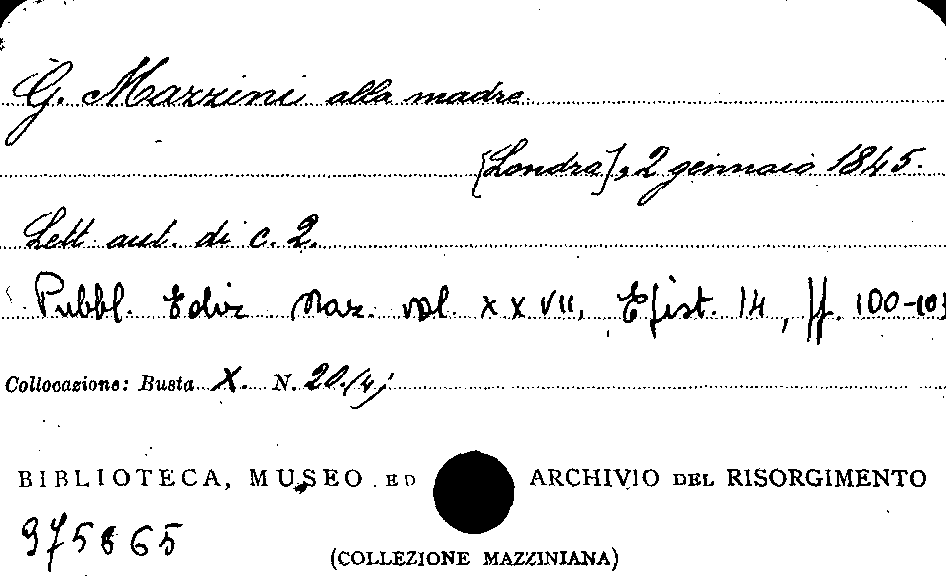 G. Mazzini alla madre
[Londra], 2 gennaio 1845.
Lett. aut. di c. 2.
Pubbl. Ediz. Naz. vol. XXVII, Epist. 14, pp. 100-103
Collocazione: Busta X. N. 20./4j
BIBLIOTECA, MUSEO ED ARCHIVIO DEL RISORGIMENTO
975865
(COLLEZIONE MAZZINIANA)